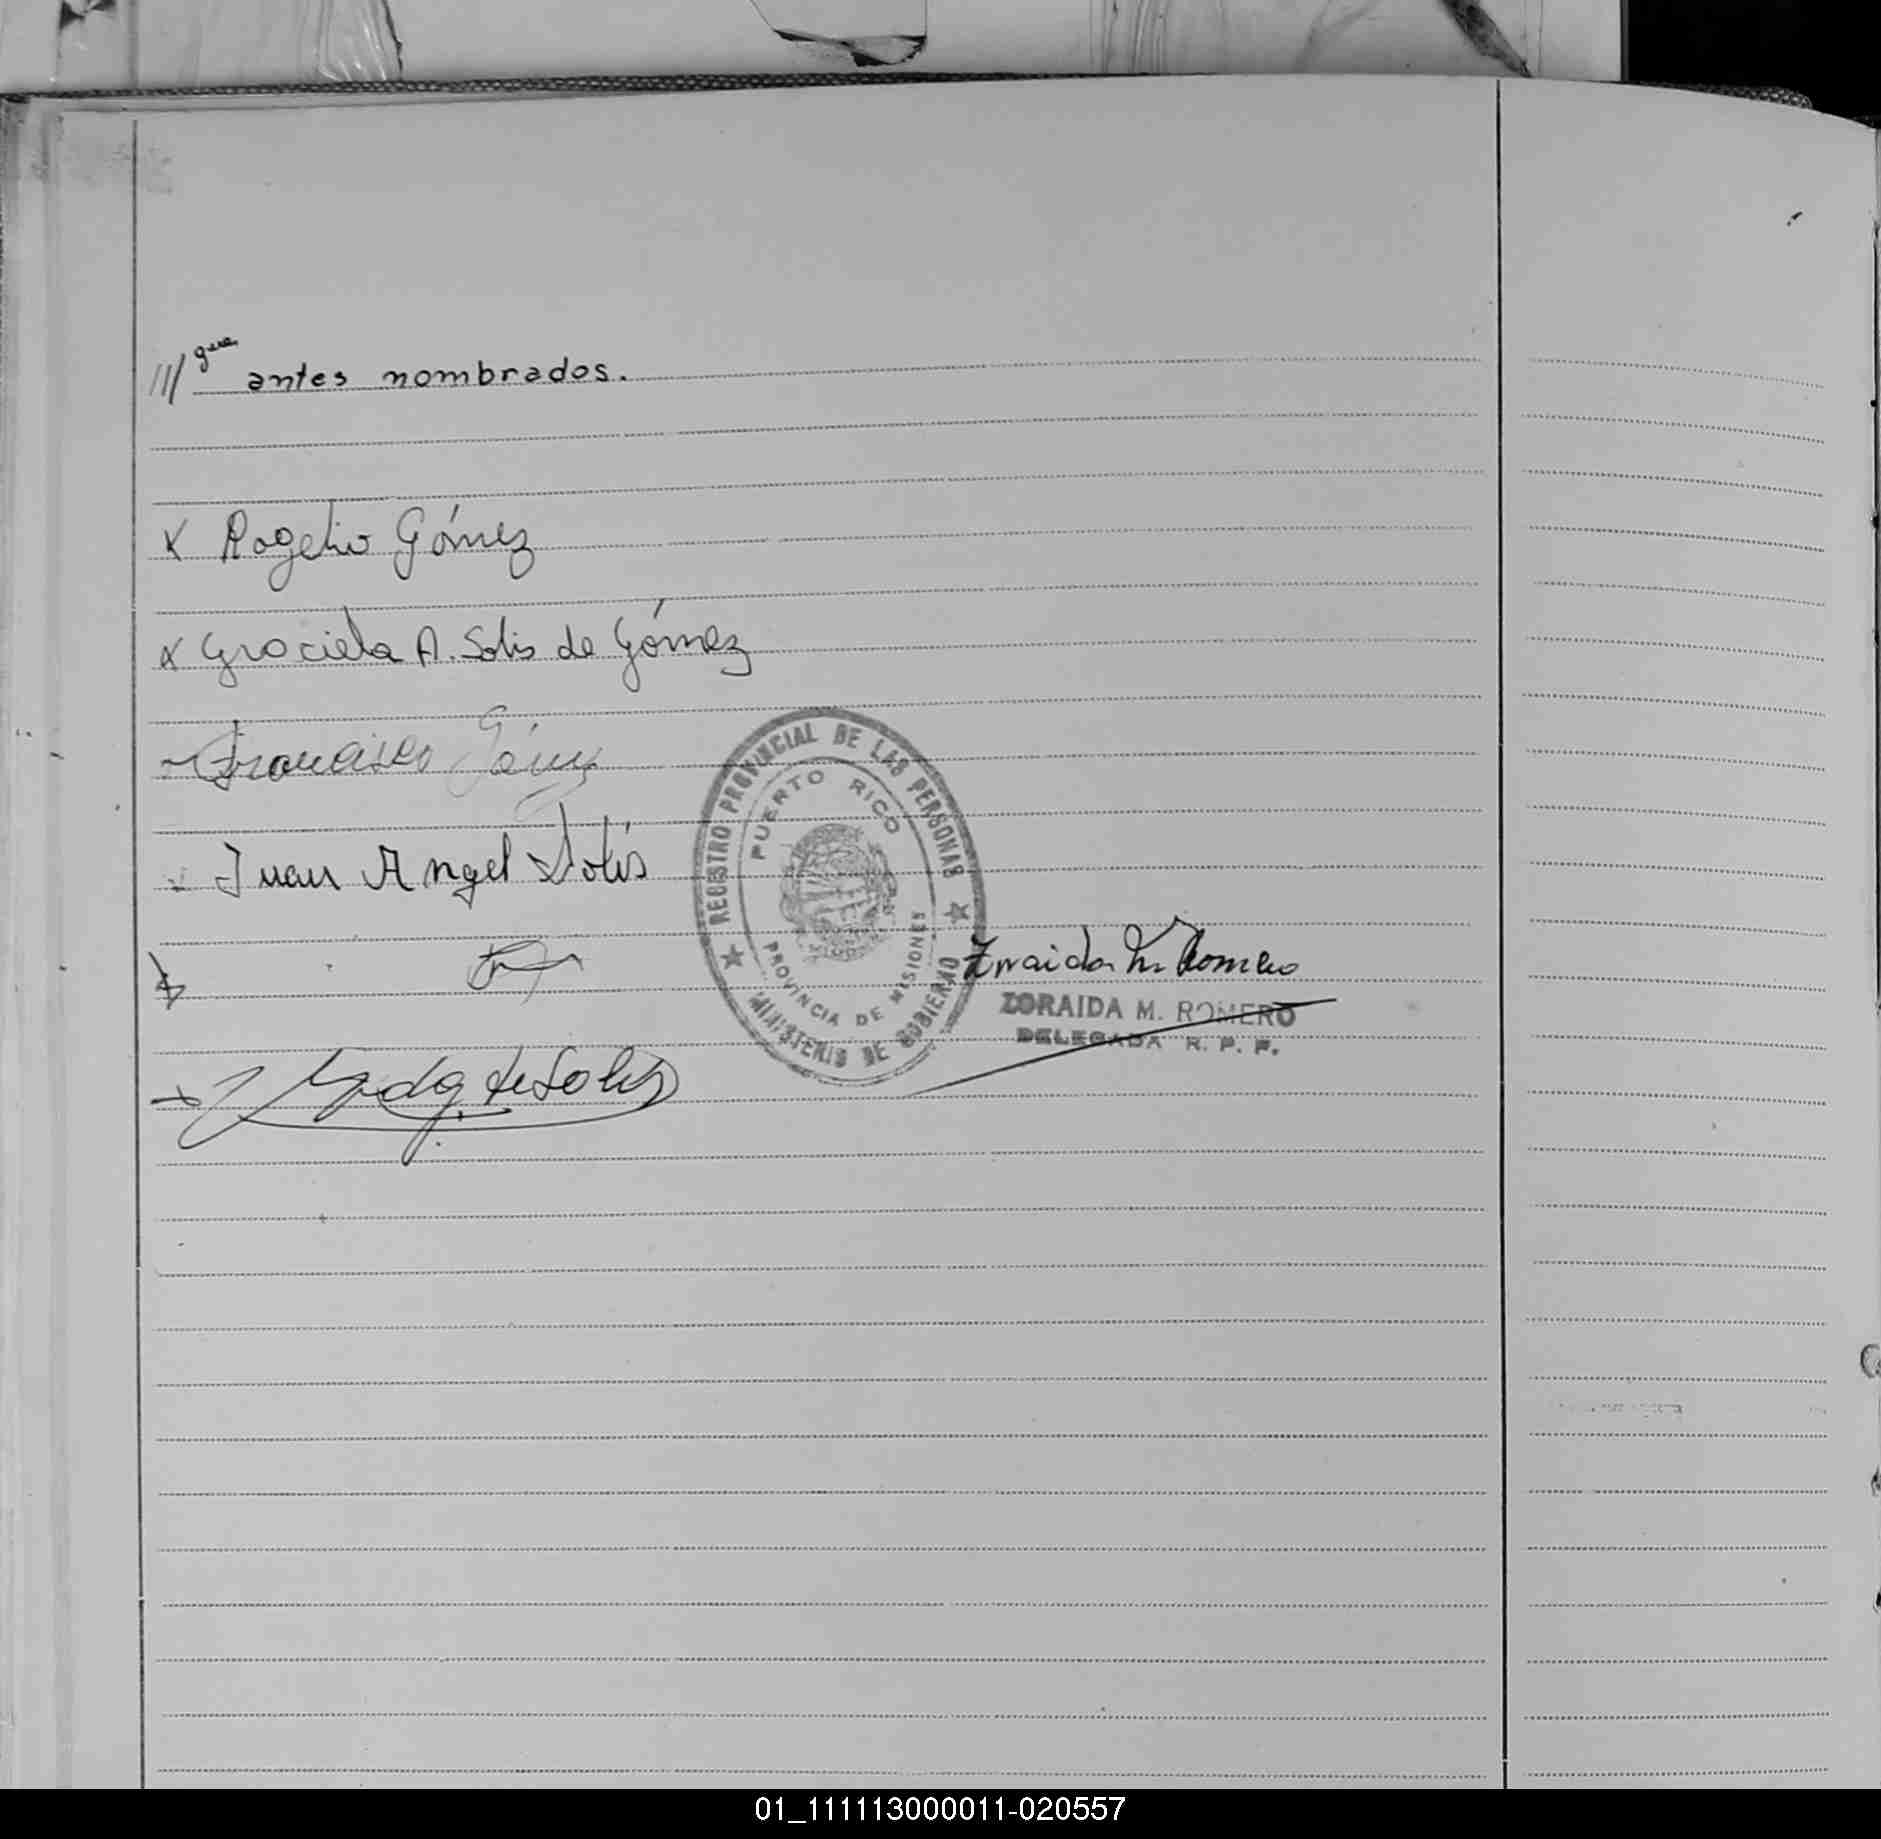 /// gue antes nombrados.
x Rogelio Gómez
x Graciela A. Solis de Gómez
Francisco Gómez
Juan Angel Solis
REGISTRO PROVINCIAL DE LAS PERSONAS
PUERTO RICO
PROVINCIA DE MISIONES
MINISTERIO DE GOBIERNO
Zoraida M. Romero
ZORAIDA M. ROMERO
DELEGADA R. P. P.
de Solis
01_111113000011-020557